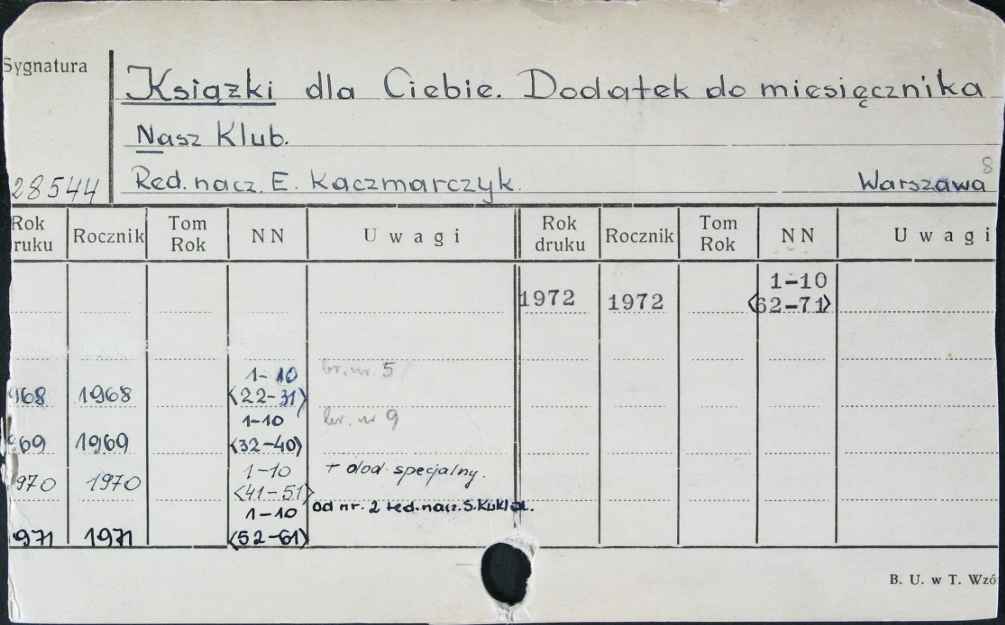 Sygnatura
Książki dla Ciebie. Dodatek do miesięcznika
Nasz Klub.
28544 Red. nacz. E. Kaczmarczyk. Warszawa 8
Rok ruku Rocznik Tom Rok NN Uwagi Rok druku Rocznik Tom Rok NN Uwagi
1-10
1972 1972 <62-71>
1-10 br. nr. 5
968 1968 <22-31>
1-10 br. nr 9
969 1969 <32-40>
1-10 + dod. specjalny.
1970 1970 <41-51>
1-10 od nr. 2 red. nacz. S. Kukla.
1971 1971 <52-61>
B. U. w T. Wzó